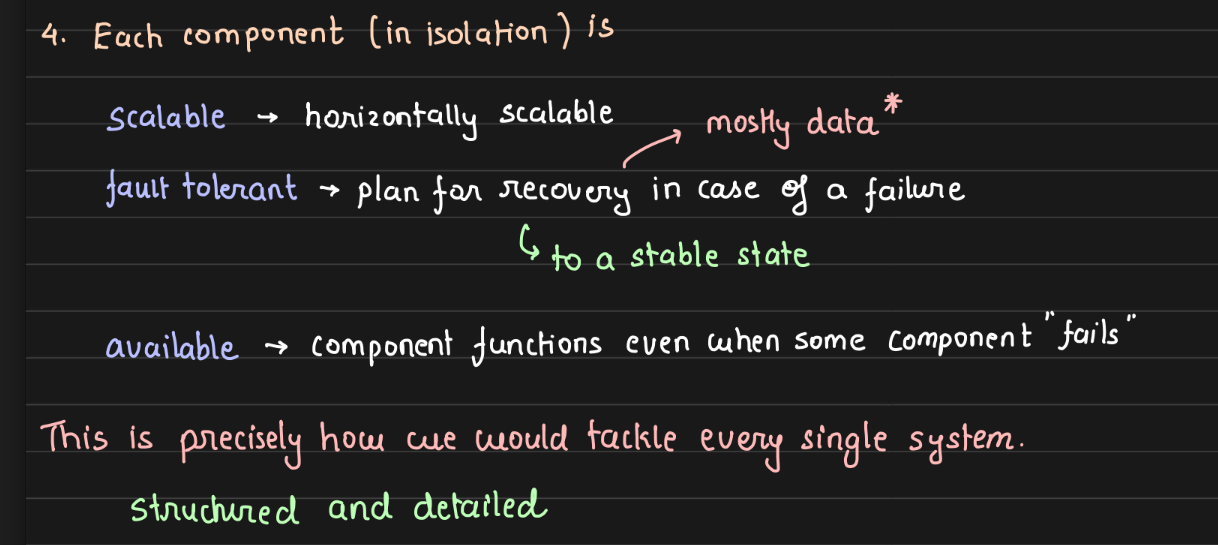 4. Each component (in isolation) is
scalable → horizontally scalable
mostly data*
fault tolerant → plan for recovery in case of a failure
↳ to a stable state
available → component functions even when some component "fails"
This is precisely how we would tackle every single system.
structured and detailed